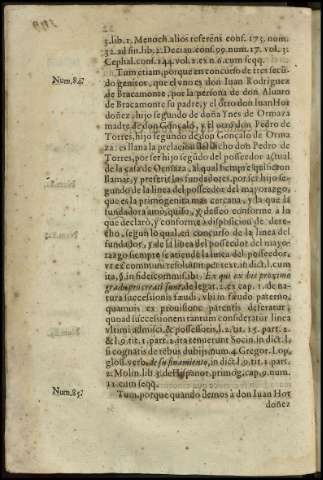 3.lib. 1. Menoch. alios referens conf. 173. num.
32. ad fin. lib. 2. Decian. conf. 99. num. 17. vol. 3.
Cephal. conf. 144. vol. 2. ex n. 6. cum seqq.
Num. 84.
Tum etiam, porque en concurso de tres segũ-
dogenitos, que el vno es don Iuan Rodriguez
de Bracamonte, por la persona de don Aluaro
de Bracamonte su padre, y el otro don Iuan Hor
doñez, hijo segundo de doña Ynes de Ormaza
madre de don Gonçalo, y el otro don Pedro de
Torres, hijo segundo de don Gonçalo de Orma-
za: es llana la prelacion del dicho don Pedro de
Torres, por ser hijo segũdo del posseedor actual
de la casa de Ormaza, al qual siempre quisieron
llamar, y preferir las fundadores, por ser hijo se-
gundo de la linea del posseedor del mayorazgo,
que es la primogenita mas cercana, y a la que la
fundadora amò, quiso, y desseò conforme a lo
que declarò, y conforme a disposicion de dere-
cho, segun lo qual, en concurso de la linea del
fundador, y de la linea del posseedor del mayo-
razgo siempre se atiende la linea del posseedor,
vt ex communi resoluitur per text. in dict. l. cum
ita, §. in fideicommiss. ibi: Ex qui ex his proximo
gradu procreati sunt, de legat. 2. ex cap. 1. de na-
tura successionis fæudi, vbi in fæudo paterno,
quamuis ex prouisione parentis deferatur,
quoad successionem tantum consideratur linea
vltimi admissi, & possessoris, l. 2. tit. 15. part. 2.
& l. 9. tit. 1. part. 2. ita tenuerunt Socin. in dict. l.
si cognatis de rebus dubijs, num. 4. Gregor. Lop.
gloss. verbo, de su finamiento, in dict. l. 9. tit. 1. part.
2. Molin. lib. 3. de Hispanor. primog. cap. 9. num.
11. cum seqq.
Num. 85.
Tum, porque quando demos à don Iuan Hor
doñez